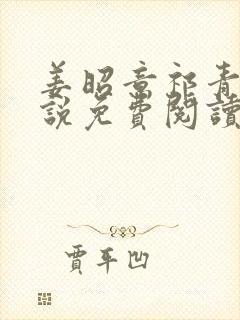 姜昭章祁青
說免費閱讀
賈平凹